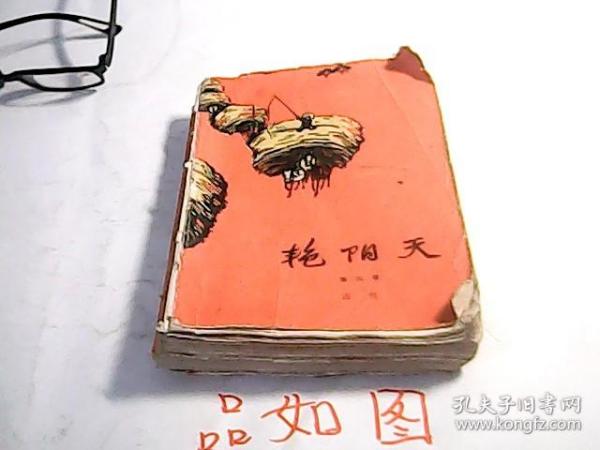 艳阳天
品如图
孔夫子旧书网
www.kongfz.com